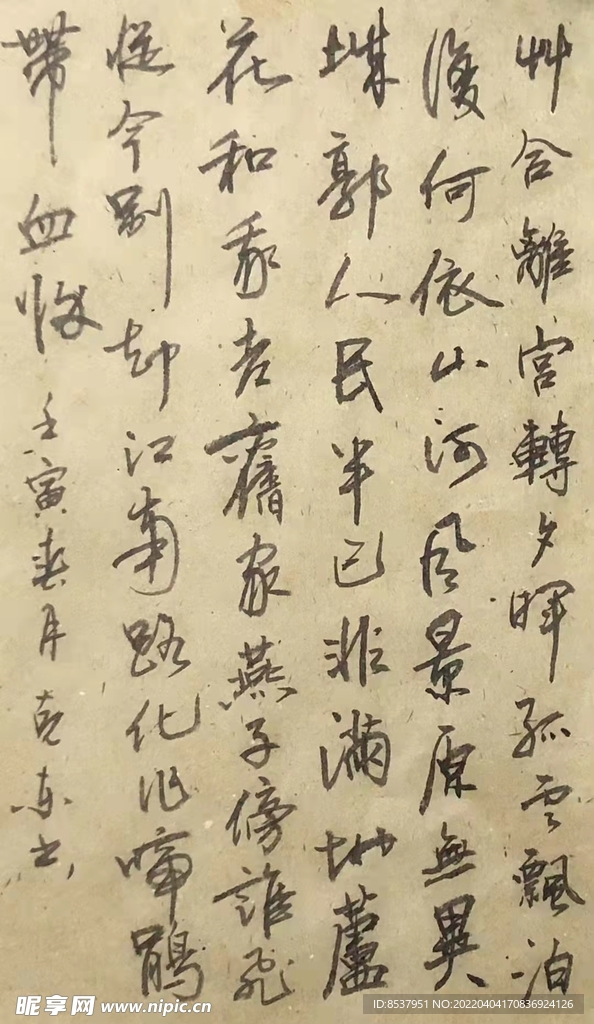 艸合離宮轉夕暉孤雲飄泊
復何依山河風景原無異
城郭人民半已非滿地蘆
花和我老舊家燕子傍誰飛
從今別却江南路化作啼鵑
帶血歸
壬寅春月克东书
昵享网 www.nipic.cn
ID:8537951 NO:20220404170836924126